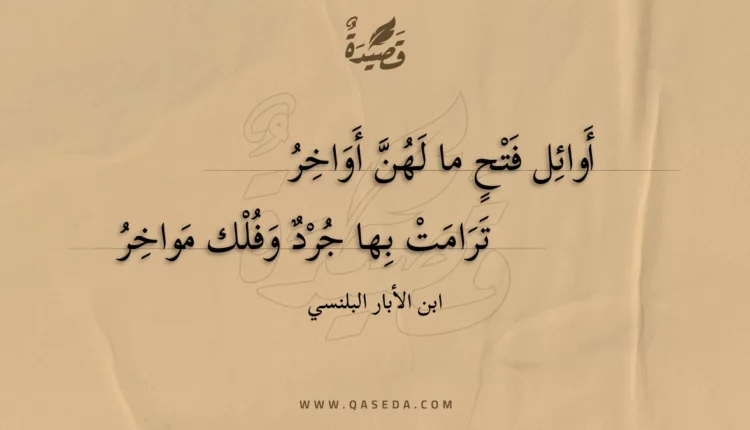 قَصِيدَةٌ
أَوائِل فَتْحٍ ما لَهُنَّ أَوَاخِرُ
تَرَامَتْ بِها جُرْدٌ وَفُلْك مَواخِرُ
ابن الأبار البلنسي
WWW.QASEDA.COM